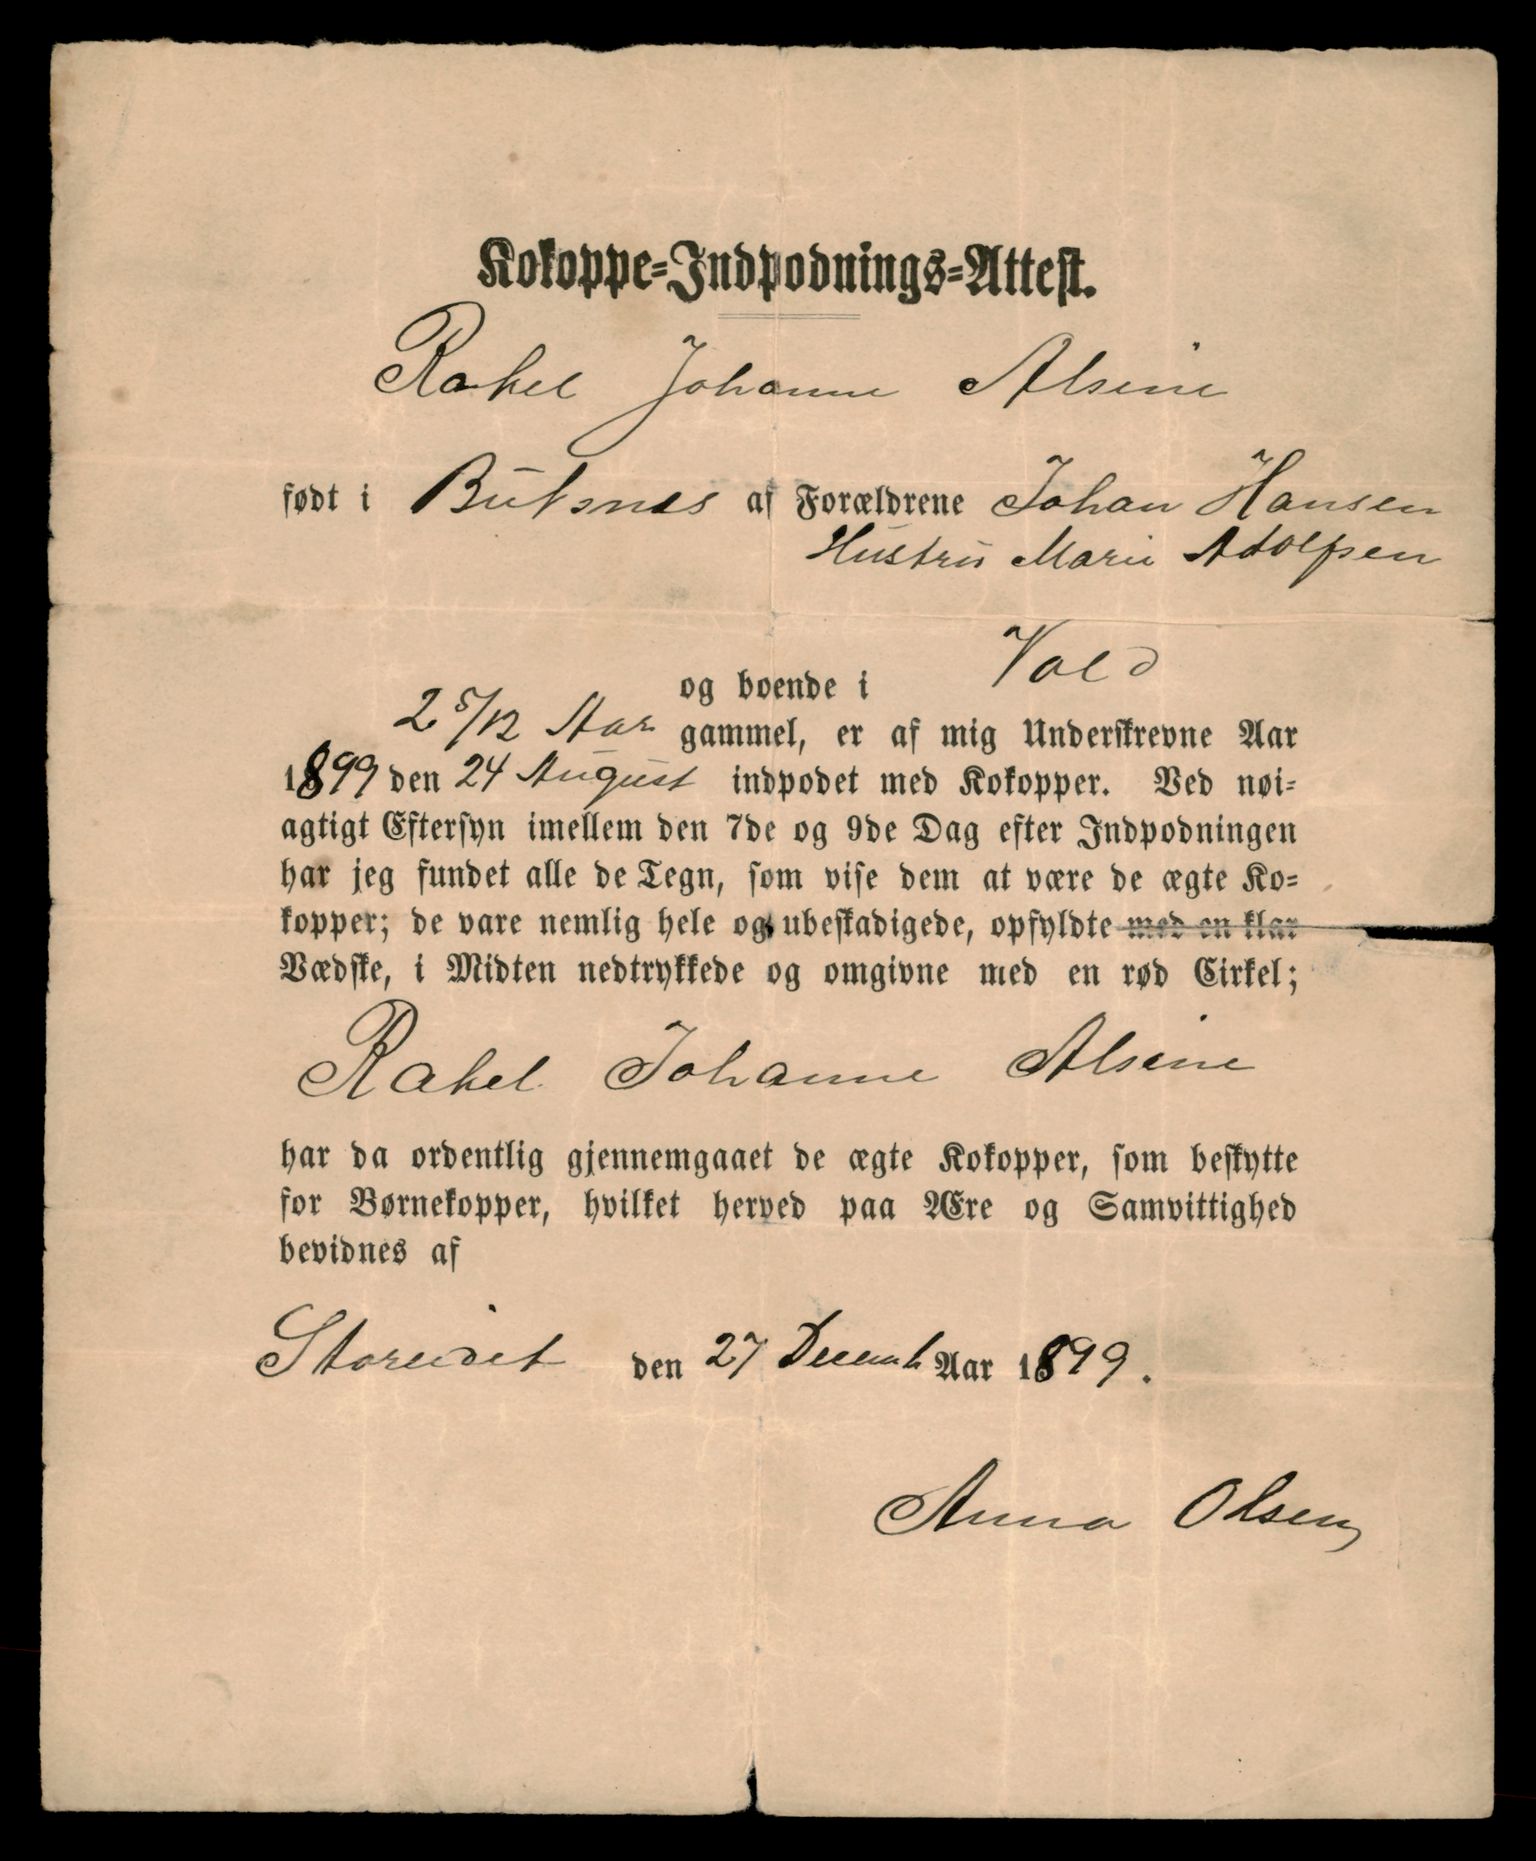 Kokoppe-Indpodnings-Attest.
Rakel Johanne Alsine
født i Buksnes af Forældrene Johan Hansen
Hustru Marie Adolfsen
og boende i Vold
2 5/12 Aar gammel, er af mig Underskrevne Aar
1899 den 24 August indpodet med Kokopper. Ved nøi-
agtigt Eftersyn imellem den 7de og 9de Dag efter Indpodningen
har jeg fundet alle de Tegn, som vise dem at være de ægte Ko-
kopper; de vare nemlig hele og ubeskadigede, opfyldte med en klar
Vædske, i Midten nedtrykkede og omgivne med en rød Cirkel;
Rakel Johanne Alsine
har da ordentlig gjennemgaaet de ægte Kokopper, som beskytte
for Børnekopper, hvilket herved paa Ære og Samvittighed
bevidnes af
Storeidet den 27 Decemb Aar 1899.
Anna Olsen